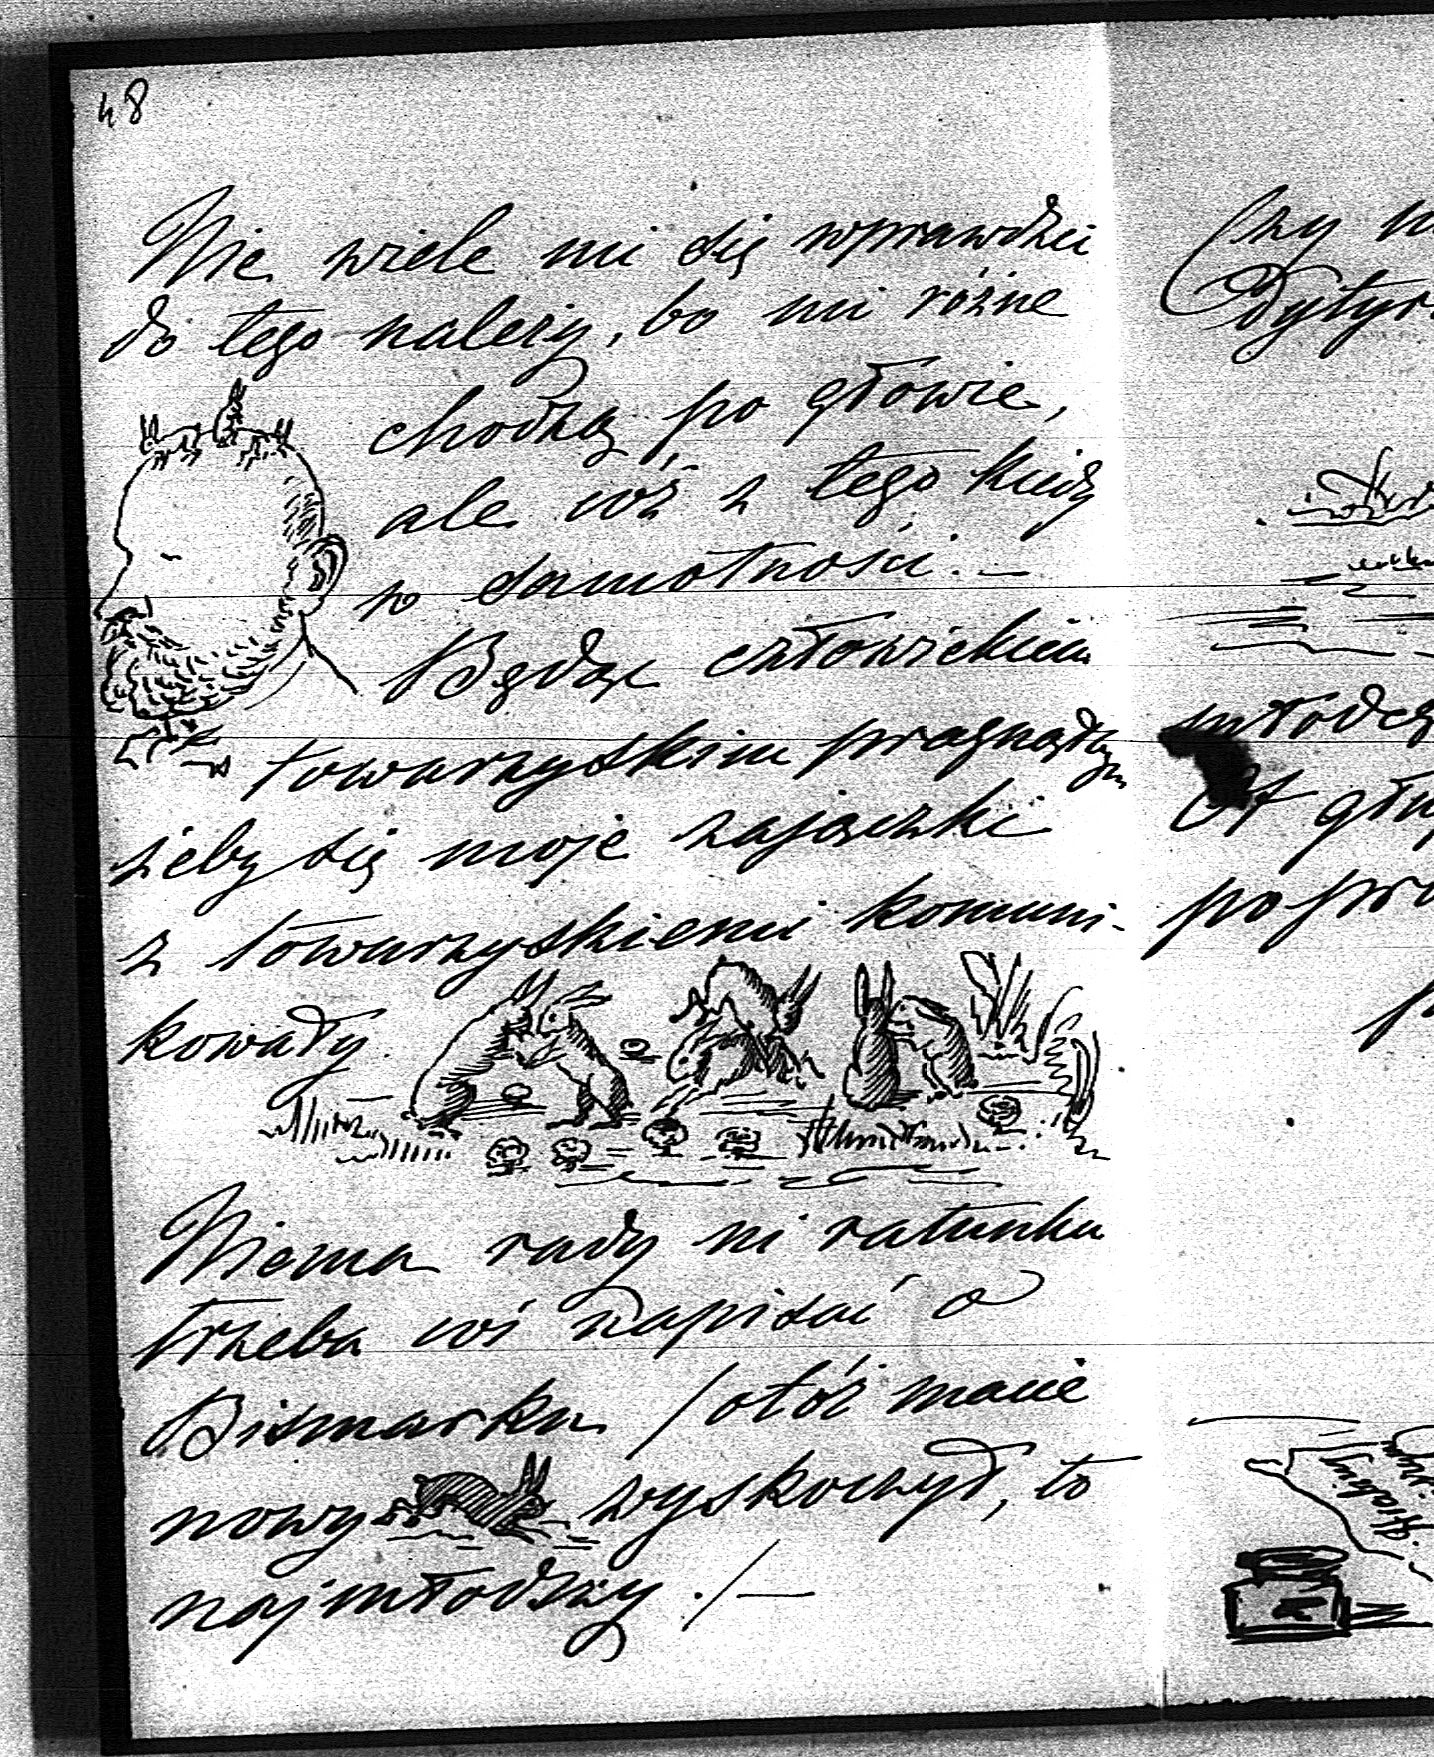 48
Nie wiele mi się wprawdzie
do tego należy, bo mi różne
chodzą po głowie,
ale coś z tego kiedy
w samotności. —
Będąc człowiekiem
towarzyskim pragnąłbym
żeby się moje zajączki
z towarzyskiemi komuni-
kowały.
Niema rady ni ratunku
trzeba coś napisać o
Bismarku / otóż macie
nowy wyskoczył, to
najmłodszy ./ —
Czy
po